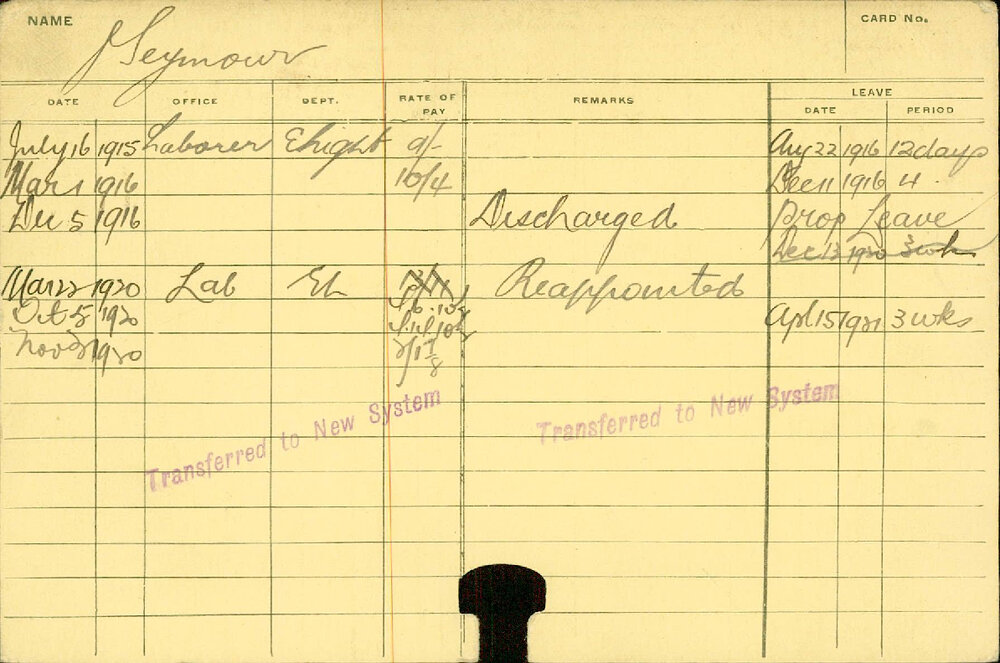 NAME
CARD No.
J Seymour
DATE OFFICE DEPT. RATE OF PAY REMARKS LEAVE
DATE PERIOD
July 16 1915 Laborer Elight 9/- Aug 22 1916 12 days
Mar 1 1916 10/4 Dec 11 1916 4
Dec 5 1916 Discharged Prop Leave
Dec 13 1920 3 wks
Mar 22 1920 Lab EL Reappointed
Oct 5 1920 Apl 15 1921 3 wks
Nov 2 1920
Transferred to New System Transferred to New System